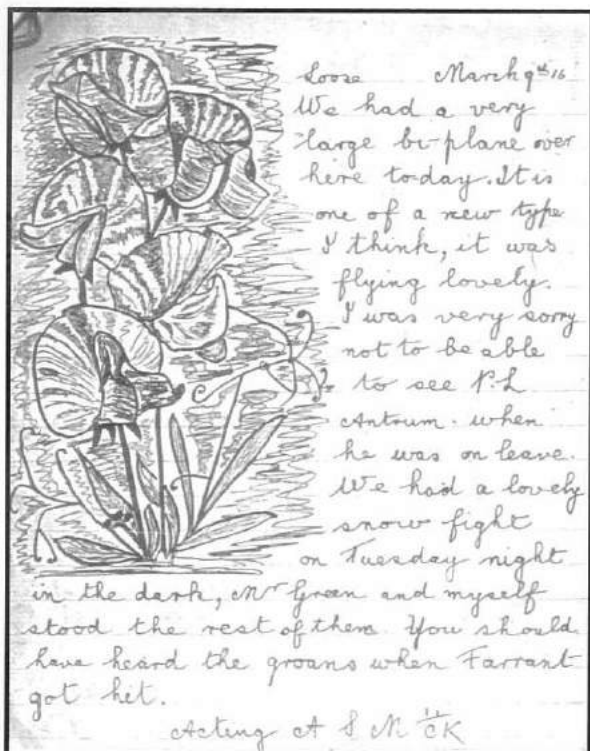 Loose March 9th 16
We had a very
large bi-plane over
here today. It is
one of a new type
I think, it was
flying lovely.
I was very sorry
not to be able
to see P.L
Antrum. when
he was on leave.
We had a lovely
snow fight
on Tuesday night
in the dark, Mr Green and myself
stood the rest of them. You should
have heard the groans when Farrant
got hit.
Acting A S M